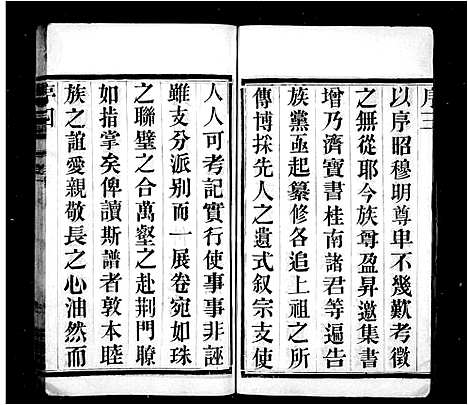 序三
以序昭穆明尊卑不幾歎考徵
之無從耶今族尊盈昇邀集書
增乃濟寶書桂南諸君等遍告
族黨亟起纂修各追上祖之所
傳博採先人之遺式叙宗支使
人人可考記實行使事事非誣
雖支分派別而一展卷宛如珠
之聯璧之合萬壑之赴荆門瞭
如指掌矣俾讀斯譜者敦本睦
族之誼愛親敬長之心油然而
序四